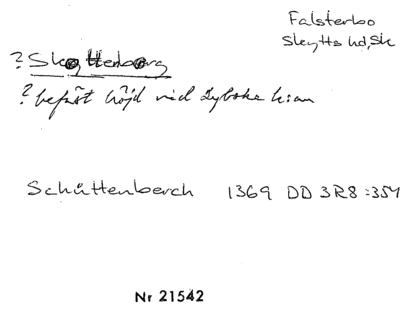 Falsterbo
Skytts hd, Sk
? Skyttenborg
? befäst höjd vid Lybska k:an
Schúttenberch 1369 DD 3R8:357
Nr 21542